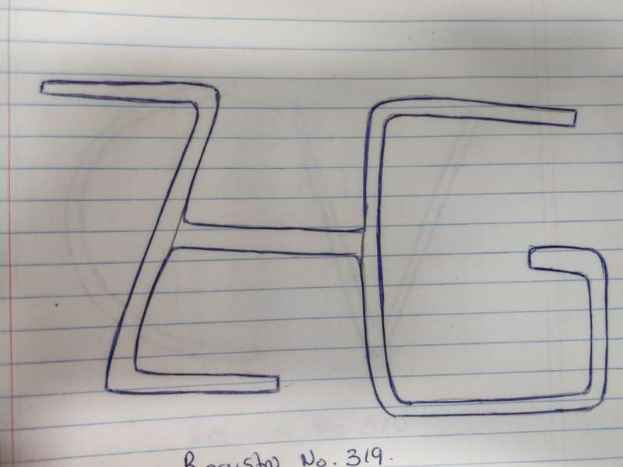 ZHG
Register No. 319.